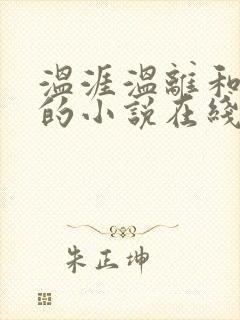 温涯温離和
的小说在綫
朱正坤